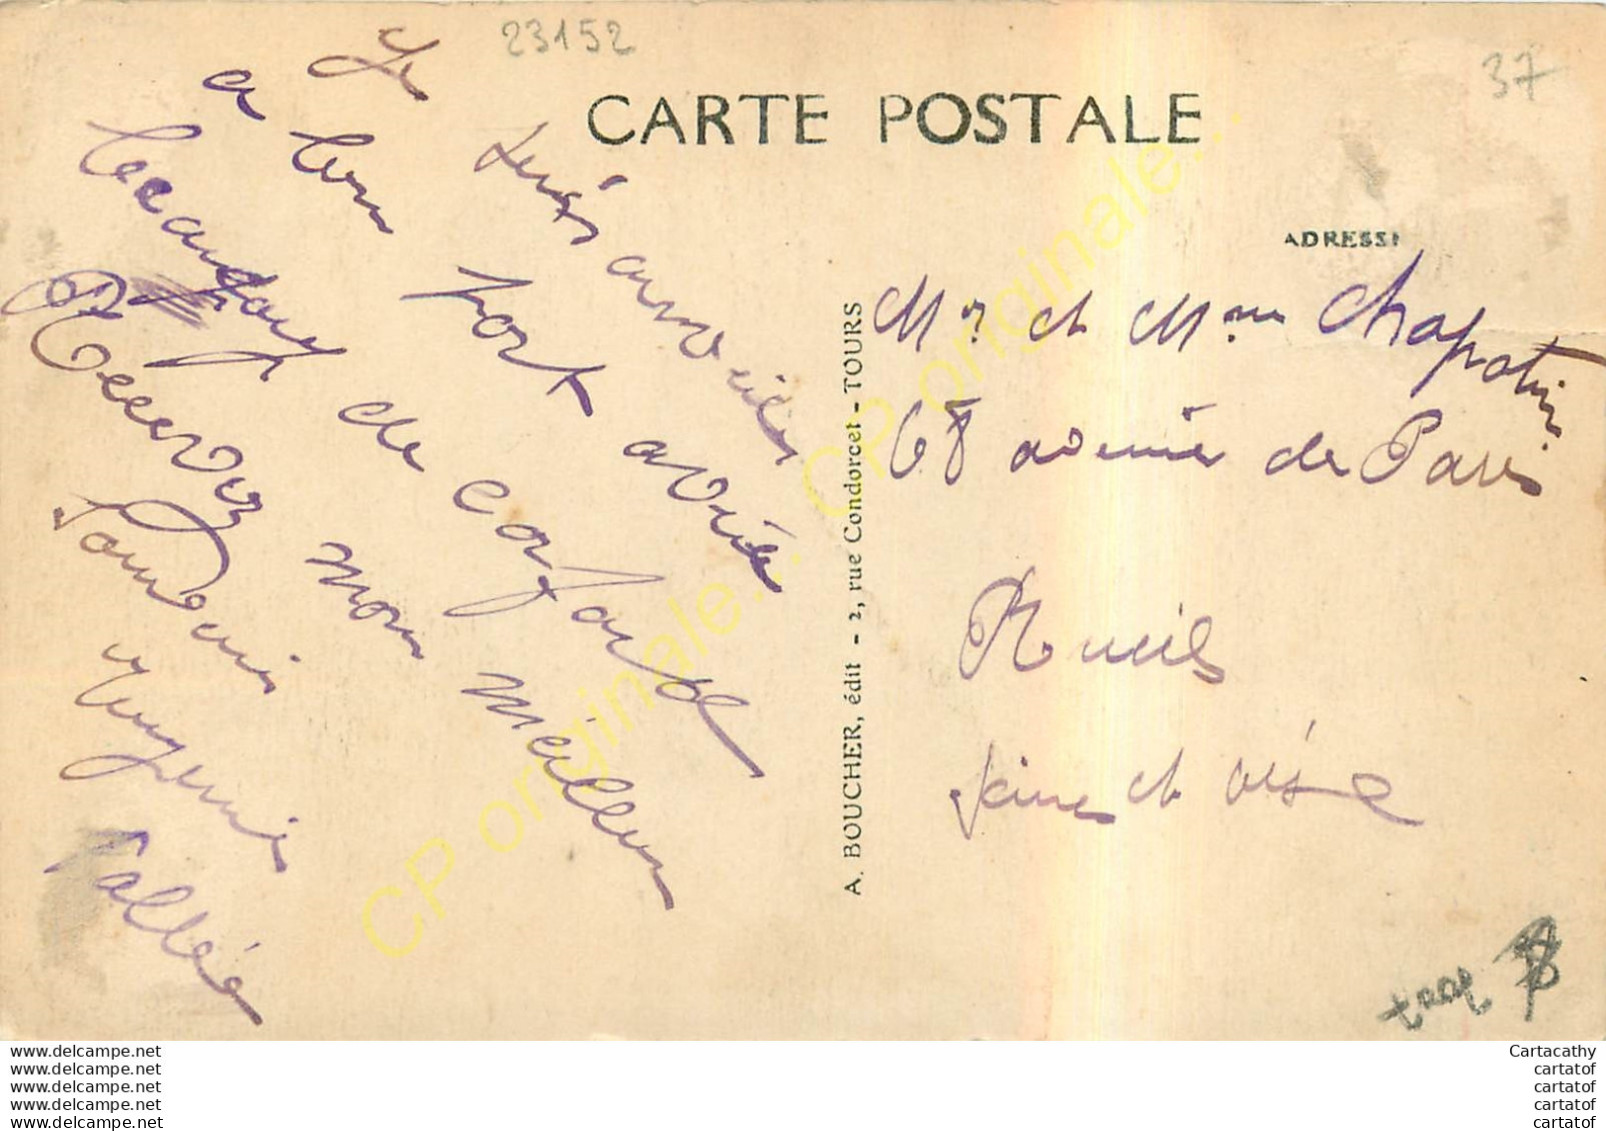 23152
37
CARTE POSTALE
ADRESSE
Je suis arrivées
a bon port avèc
beaucoup de confort
Recevez mon meilleur
Souvenir
Eugenie
Vallée
A. BOUCHER, édit - 2, rue Condorcet - TOURS
Mr et Mme Chapotin
68 avenue de Paris
Rueil
Seine et oise
CP originale...
CP originale...
www.delcampe.net
www.delcampe.net
www.delcampe.net
www.delcampe.net
www.delcampe.net
Cartacathy
cartatof
cartatof
cartatof
cartatof